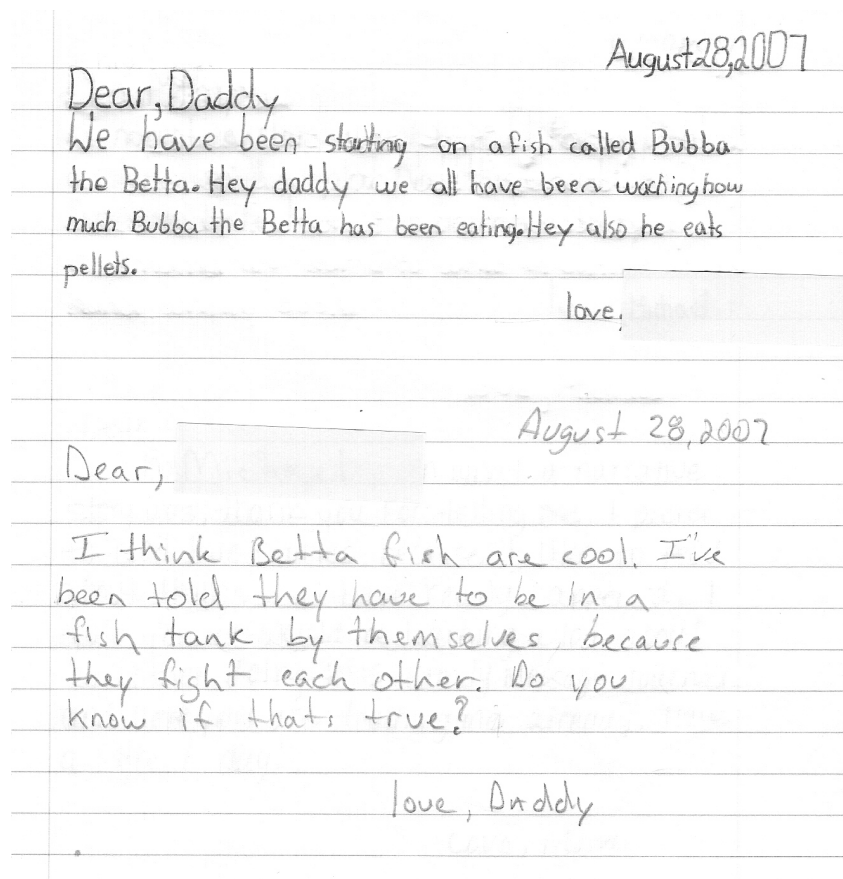 August 28, 2007
Dear, Daddy
We have been starting on a fish called Bubba
the Betta. Hey daddy we all have been waching how
much Bubba the Betta has been eating. Hey also he eats
pellets.
love,
August 28, 2007
Dear,
I think Betta fish are cool. I've
been told they have to be in a
fish tank by themselves, because
they fight each other. Do you
know if thats true?
love, Daddy